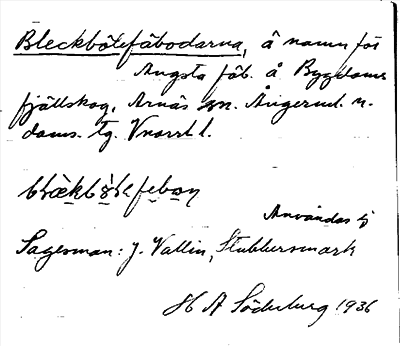 Bleckbötefäbodarna, ä namn för
Ångsta fäb. å Bygdoms
fjällskog, Arnäs sn. Ångerml. n.
doms. tg. Vnorrl l.
Användas ej
Sagesman: J. Vallin, Stubbersmark
H A Söderberg 1936